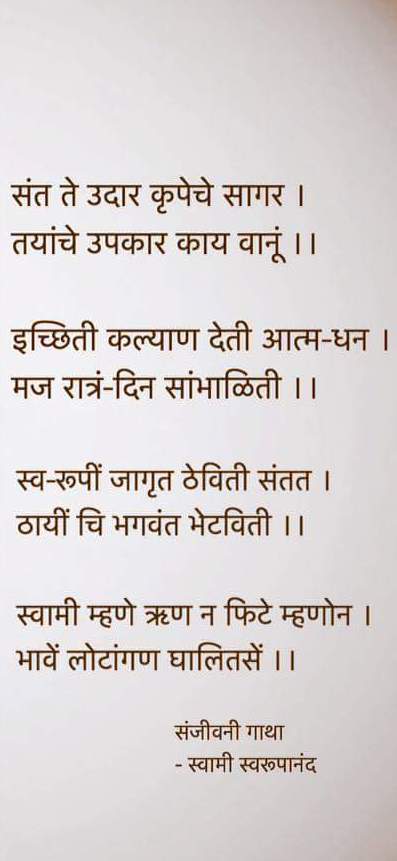 संत ते उदार कृपेचे सागर ।
तयांचे उपकार काय वानूं ।।
इच्छिती कल्याण देती आत्म-धन ।
मज रात्रं-दिन सांभाळिती ।।
स्व-रूपीं जागृत ठेविती संतत ।
ठायीं चि भगवंत भेटविती ।।
स्वामी म्हणे ऋण न फिटे म्हणोन ।
भावें लोटांगण घालितसें ।।
संजीवनी गाथा
- स्वामी स्वरूपानंद